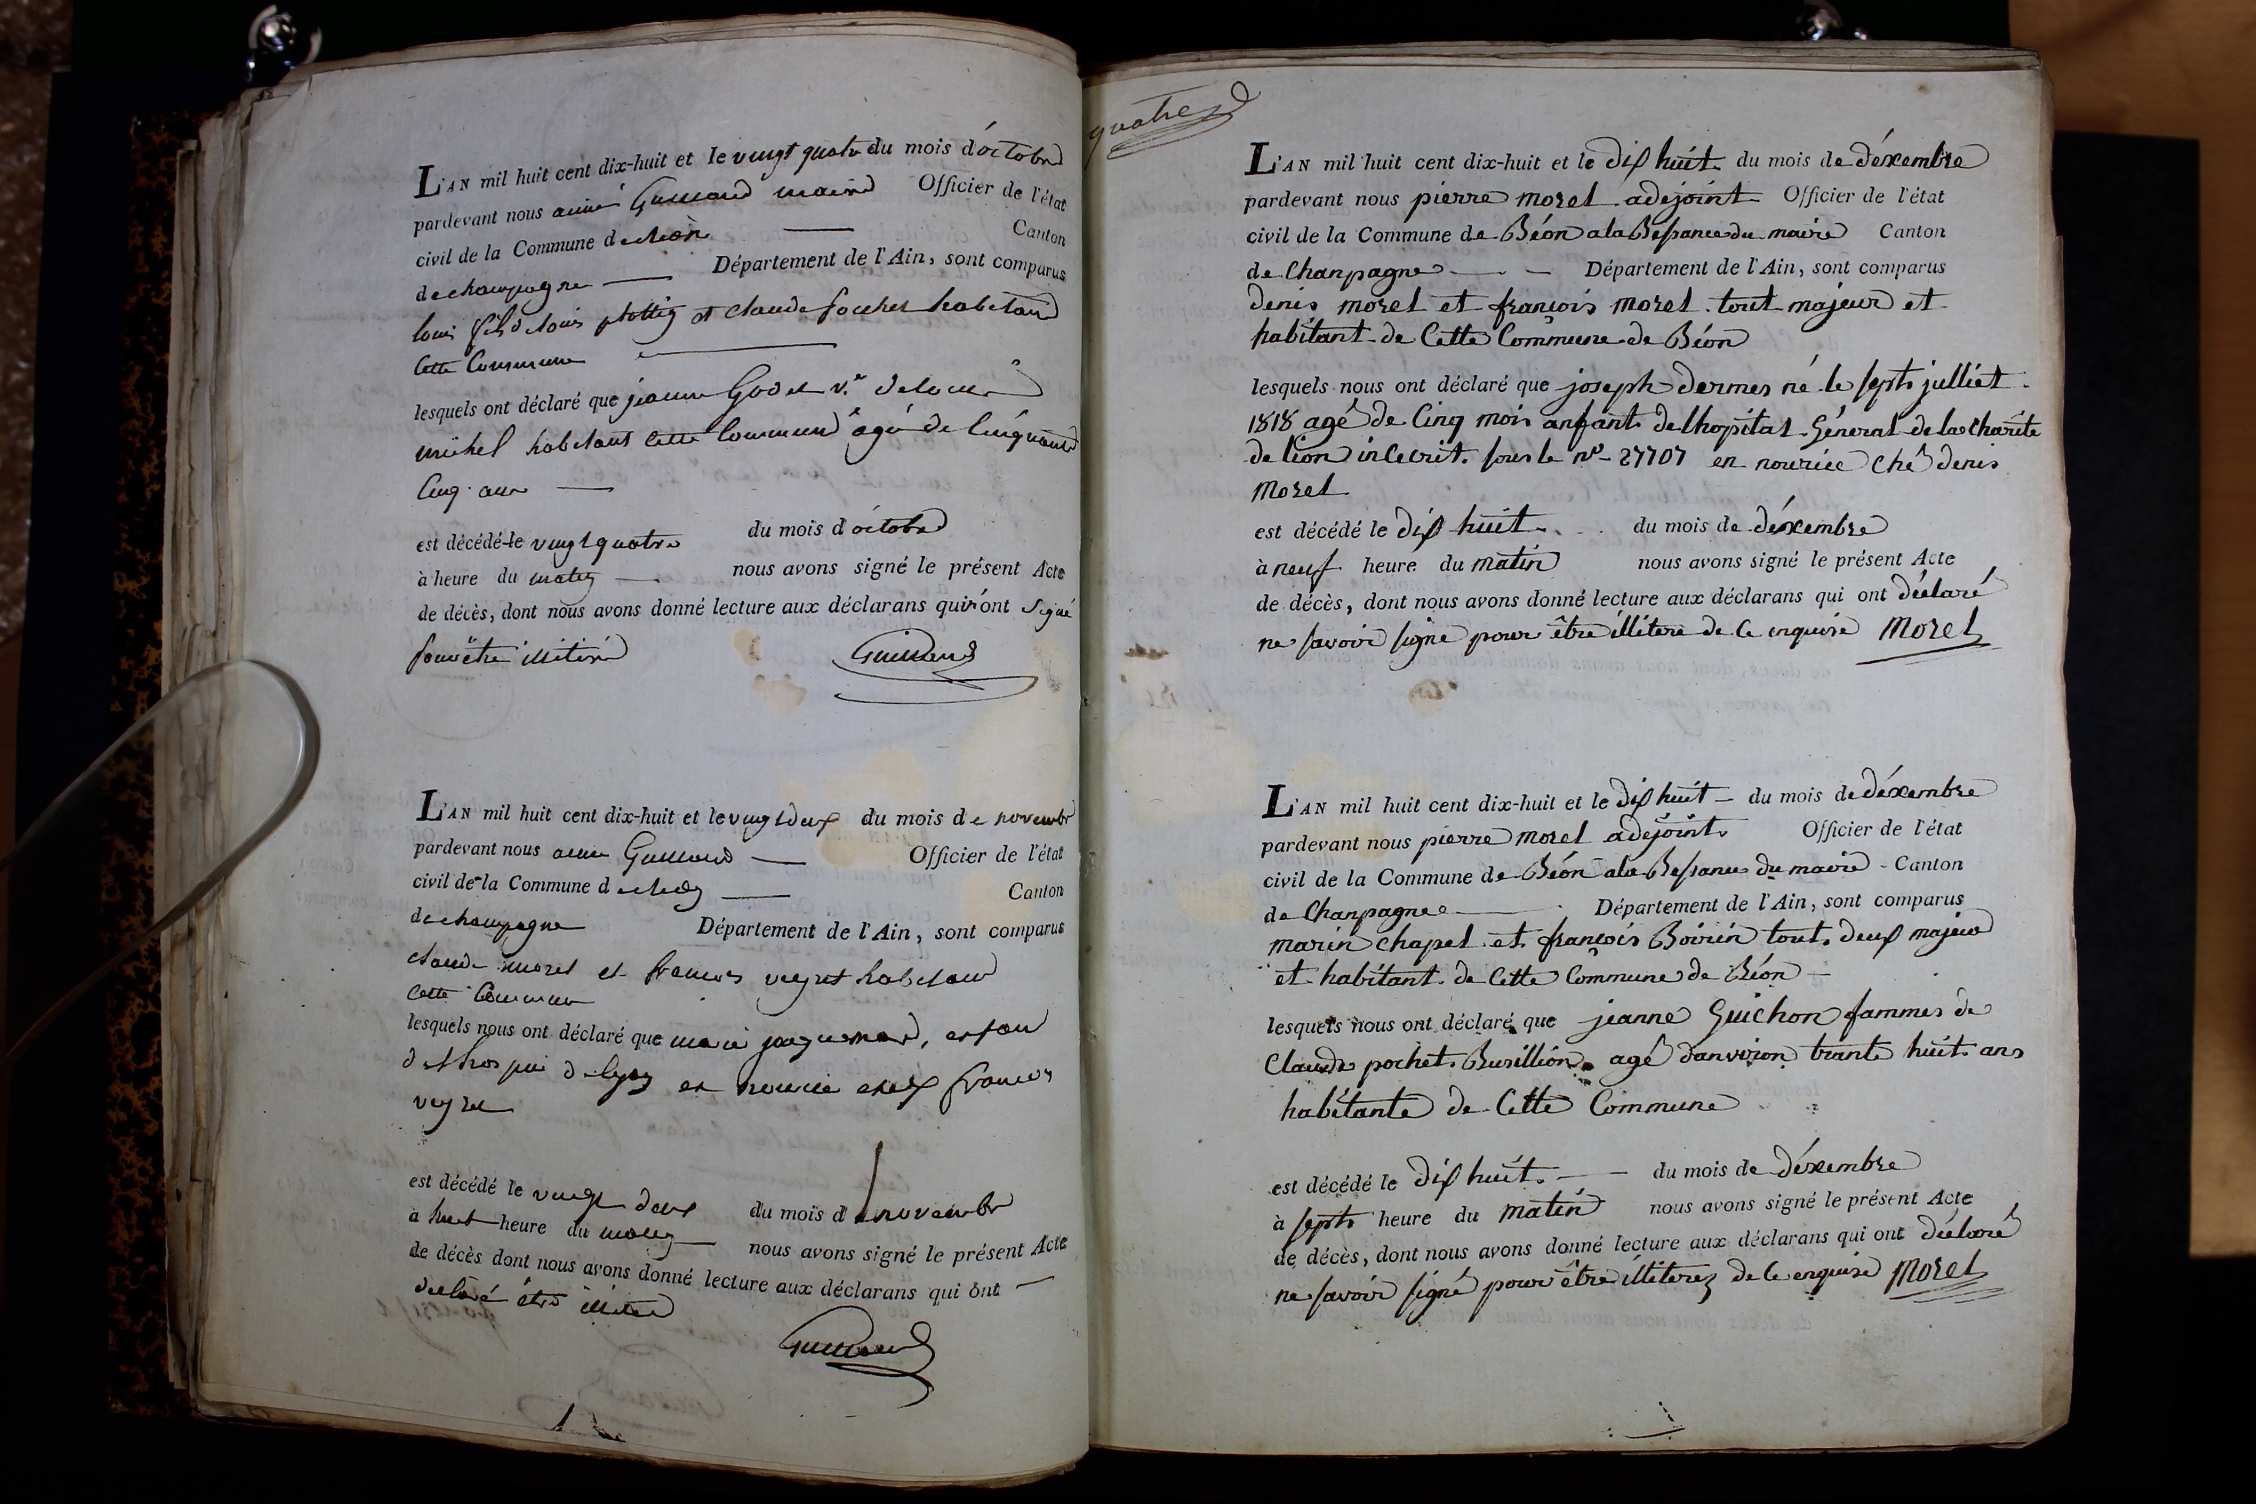 L'AN mil huit cent dix-huit et le vingt quatre du mois d'octobre
pardevant nous aimé Guillaud maire Officier de l'état
civil de la Commune de Canton
de champagne Département de l'Ain, sont comparus
louis fils de louis et claude habitant
Cette Commune
lesquels ont déclaré que jeanne Godet v.e de
michel habitant Cette Commune âgé de Cinquante
Cinq ans
est décédé le vingt quatre du mois d'octobre
à heure du matin nous avons signé le présent Acte
de décès, dont nous avons donné lecture aux déclarans qui n'ont signé
pour être illitiré Guillaud
L'AN mil huit cent dix-huit et le vingt deux du mois de novembre
pardevant nous aimé Guillaud Officier de l'état
civil de la Commune de Canton
de champagne Département de l'Ain, sont comparus
claude morel et francois veyret habitant
Cette Commune
lesquels nous ont déclaré que marie , enfant
de lhospice de lyon en nourice chez francois
veyret
est décédé le vingt deux du mois de novembre
à huit heure du matin nous avons signé le présent Acte
de décès dont nous avons donné lecture aux déclarans qui ont
déclaré être
Guillaud
quatre
L'AN mil huit cent dix-huit et le dix huit du mois de déxembre
pardevant nous pierre morel adejoint Officier de l'état
civil de la Commune de Béon a la Bessance du maire Canton
de Chanpagne Département de l'Ain, sont comparus
denis morel et françois morel tout majeur et
habitant de Cette Commune de Béon
lesquels nous ont déclaré que joseph dermes né le septs julliet
1818 agé de Cinq mois anfant de lhopital Géneral de la Charité
de lion inscerit sous le n° 27707 en nourice ché denis
morel
est décédé le dix huit du mois de déxembre
à neuf heure du matin nous avons signé le présent Acte
de décès, dont nous avons donné lecture aux déclarans qui ont déclaré
ne savoir signe pour être illitere de ce enquise Morel
L'AN mil huit cent dix-huit et le dix huit du mois de déxembre
pardevant nous pierre morel adejoint Officier de l'état
civil de la Commune de Béon a la Bessance du maire Canton
de Chanpagne Département de l'Ain, sont comparus
marin chapel et françois Boirin tout deux majeur
et habitant de Cette Commune de Béon
lesquels nous ont déclaré que jeanne Guichon fammes de
Claude pochet Burillion agé danviron trante huit ans
habitante de Cette Commune
est décédé le dix huit du mois de déxembre
à septs heure du matin nous avons signé le présent Acte
de décès, dont nous avons donné lecture aux déclarans qui ont déclaré
ne savoir signé pour être illiterez de ce enquise Morel